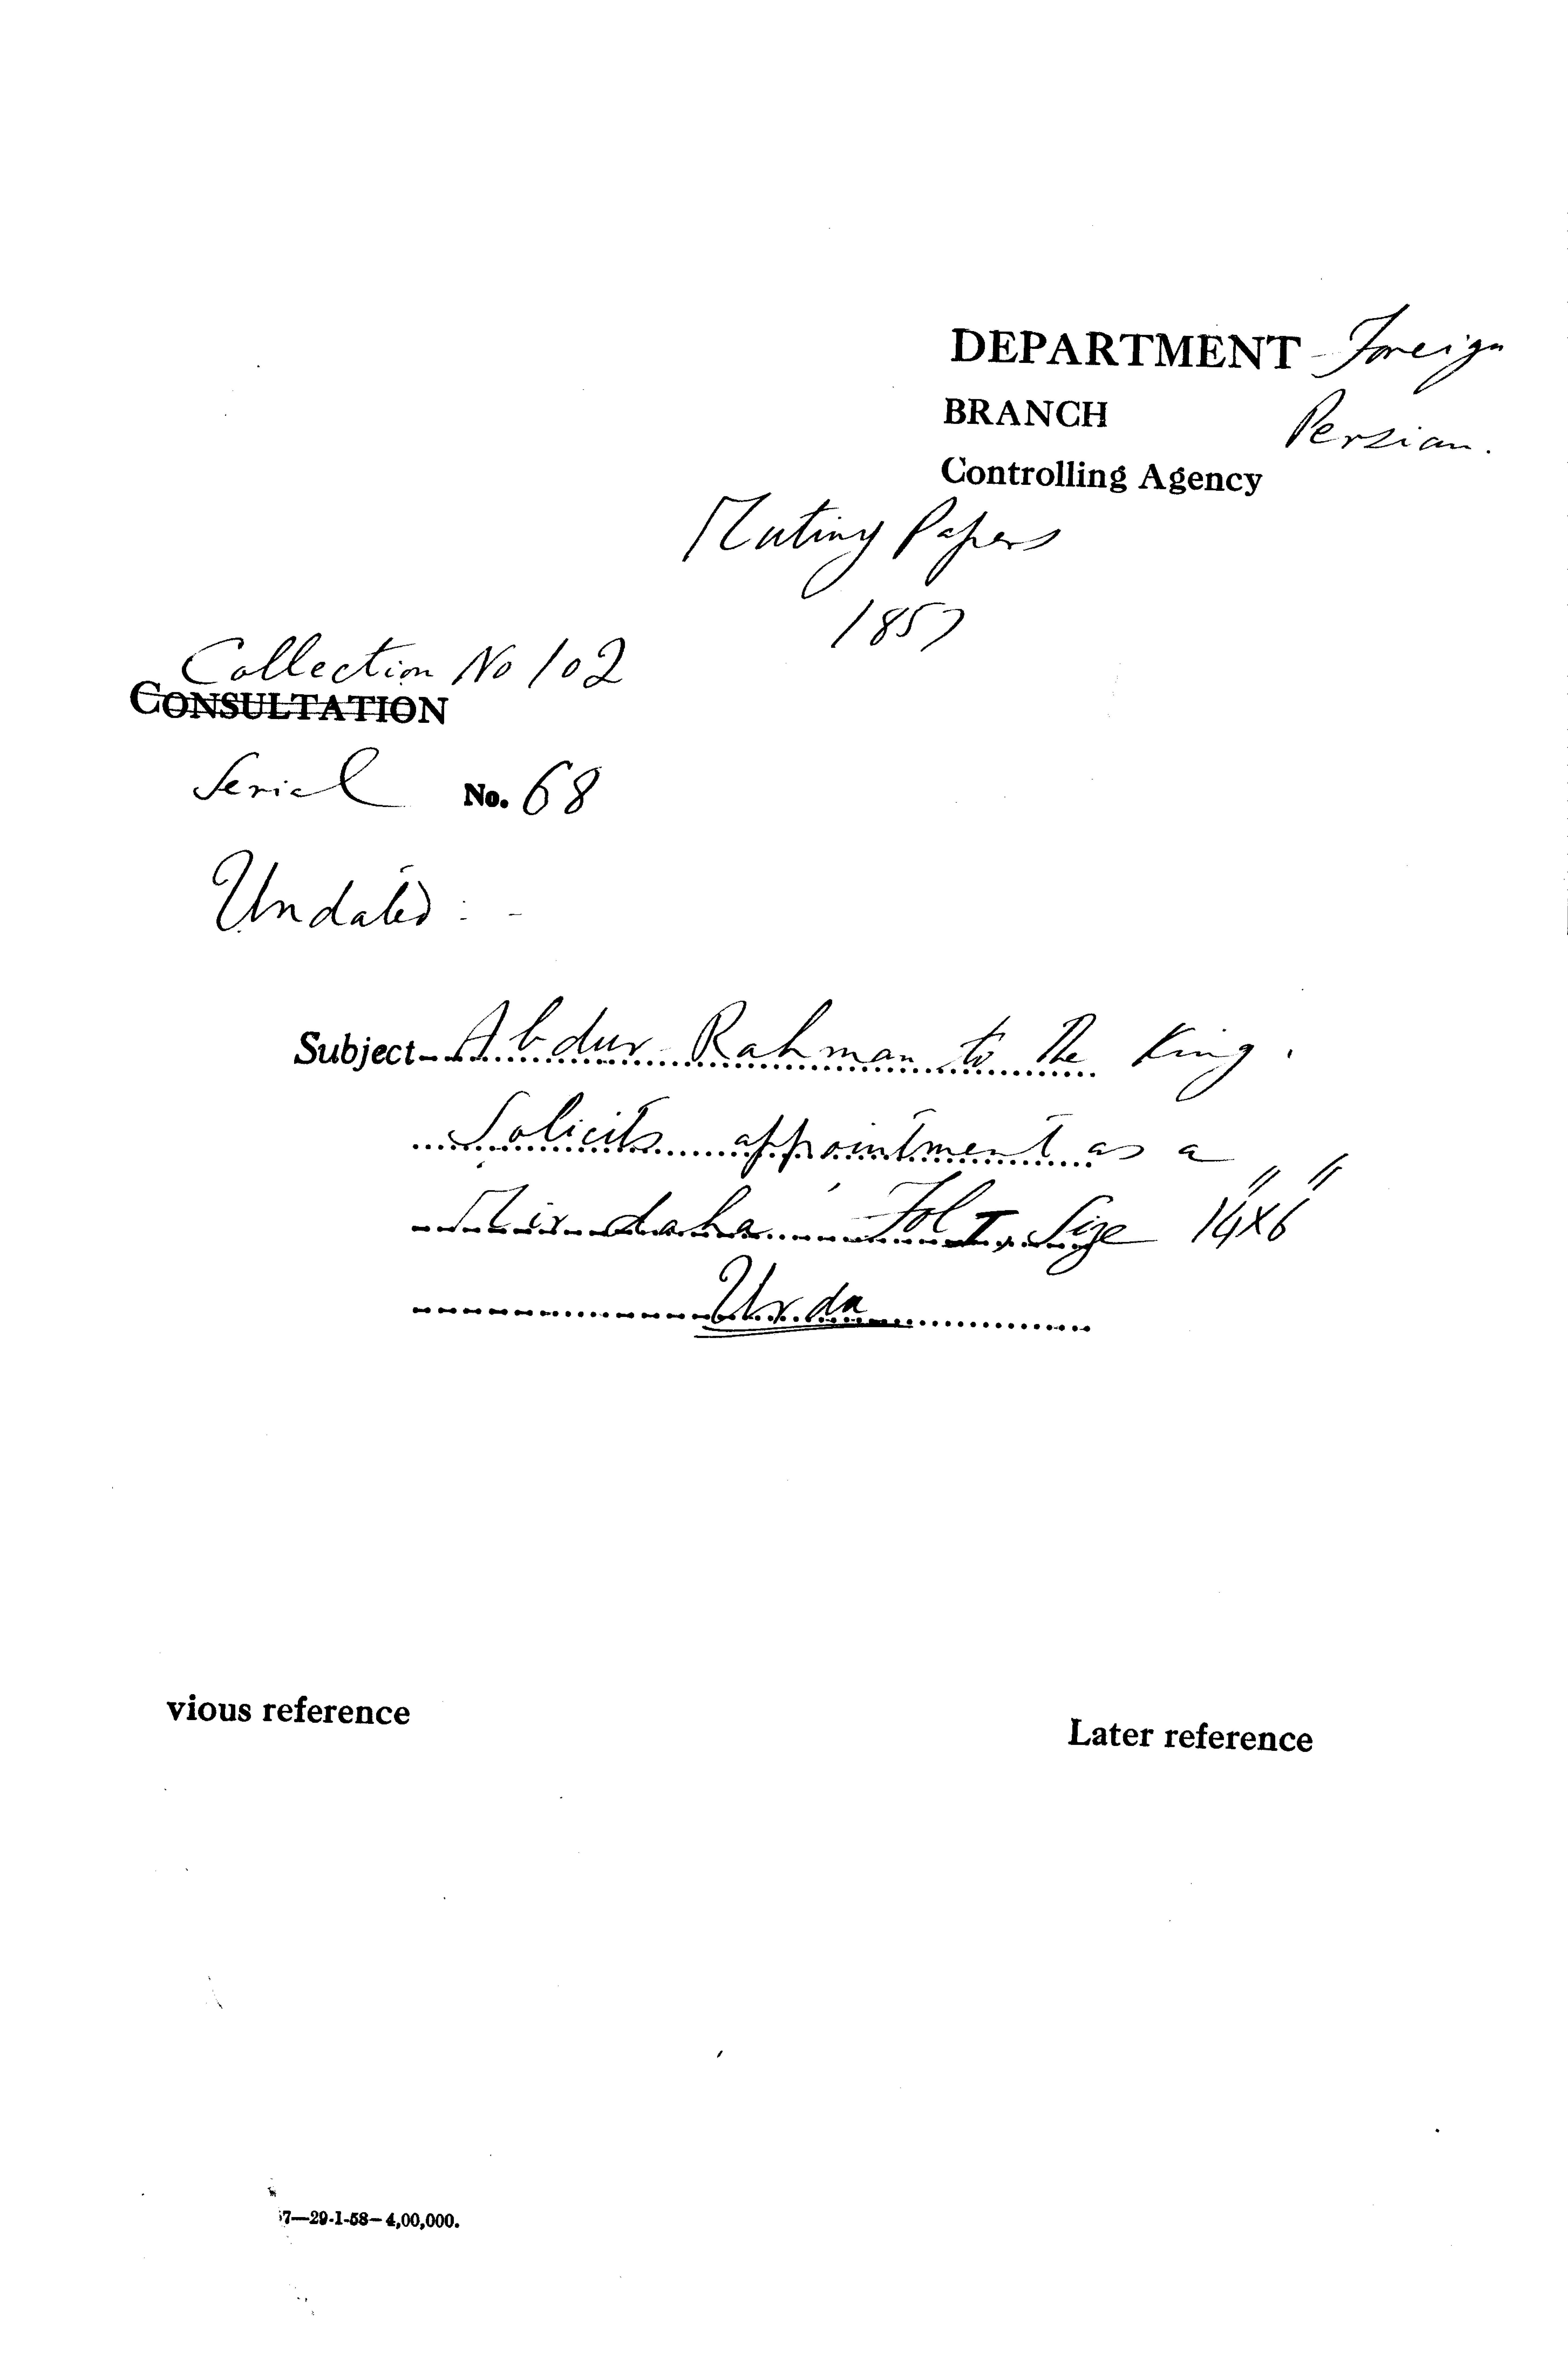 DEPARTMENT Foreign
BRANCH Persian.
Controlling Agency
Mutiny Papers
1857
Collection No 102
CONSULTATION
Serial No. 68
Undated : -
Subject - Abdur Rahman to the King.
Solicits appointment as a
Mirdaha Fol I, Size 14"x6"
Urdu
vious reference
Later reference
7—29-1-58—4,00,000.